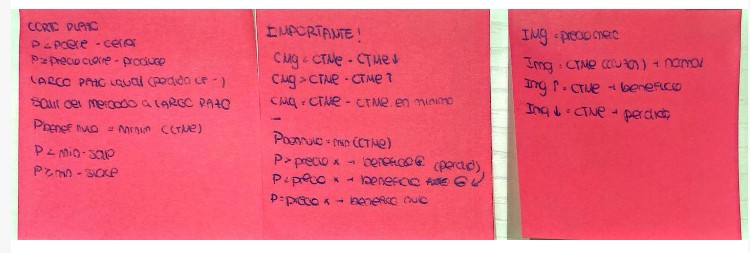 CORTO PLAZO
P < Pcierre - cerrar
P ≥ precio cierre - produce
LARGO PLAZO igual (perdida CF -)
Salir del mercado a LARGO PLAZO
Pbenef nulo = minim (CTMe)
P < min - sale
P ≥ min - sigue
IMPORTANTE!
CMg < CTMe - CTMe ↓
CMg > CTMe - CTMe ↑
CMg = CTMe - CTMe en minimo
-
Pbºnulo = min (CTMe)
P > precio x → beneficio ⊕
P < precio x → beneficio ⊖ (perdida)
P = precio x → beneficio nulo
IMg = precio merc
Img = CTMe → normal
Img ↑ = CTMe → beneficio
Img ↓ = CTMe → perdida